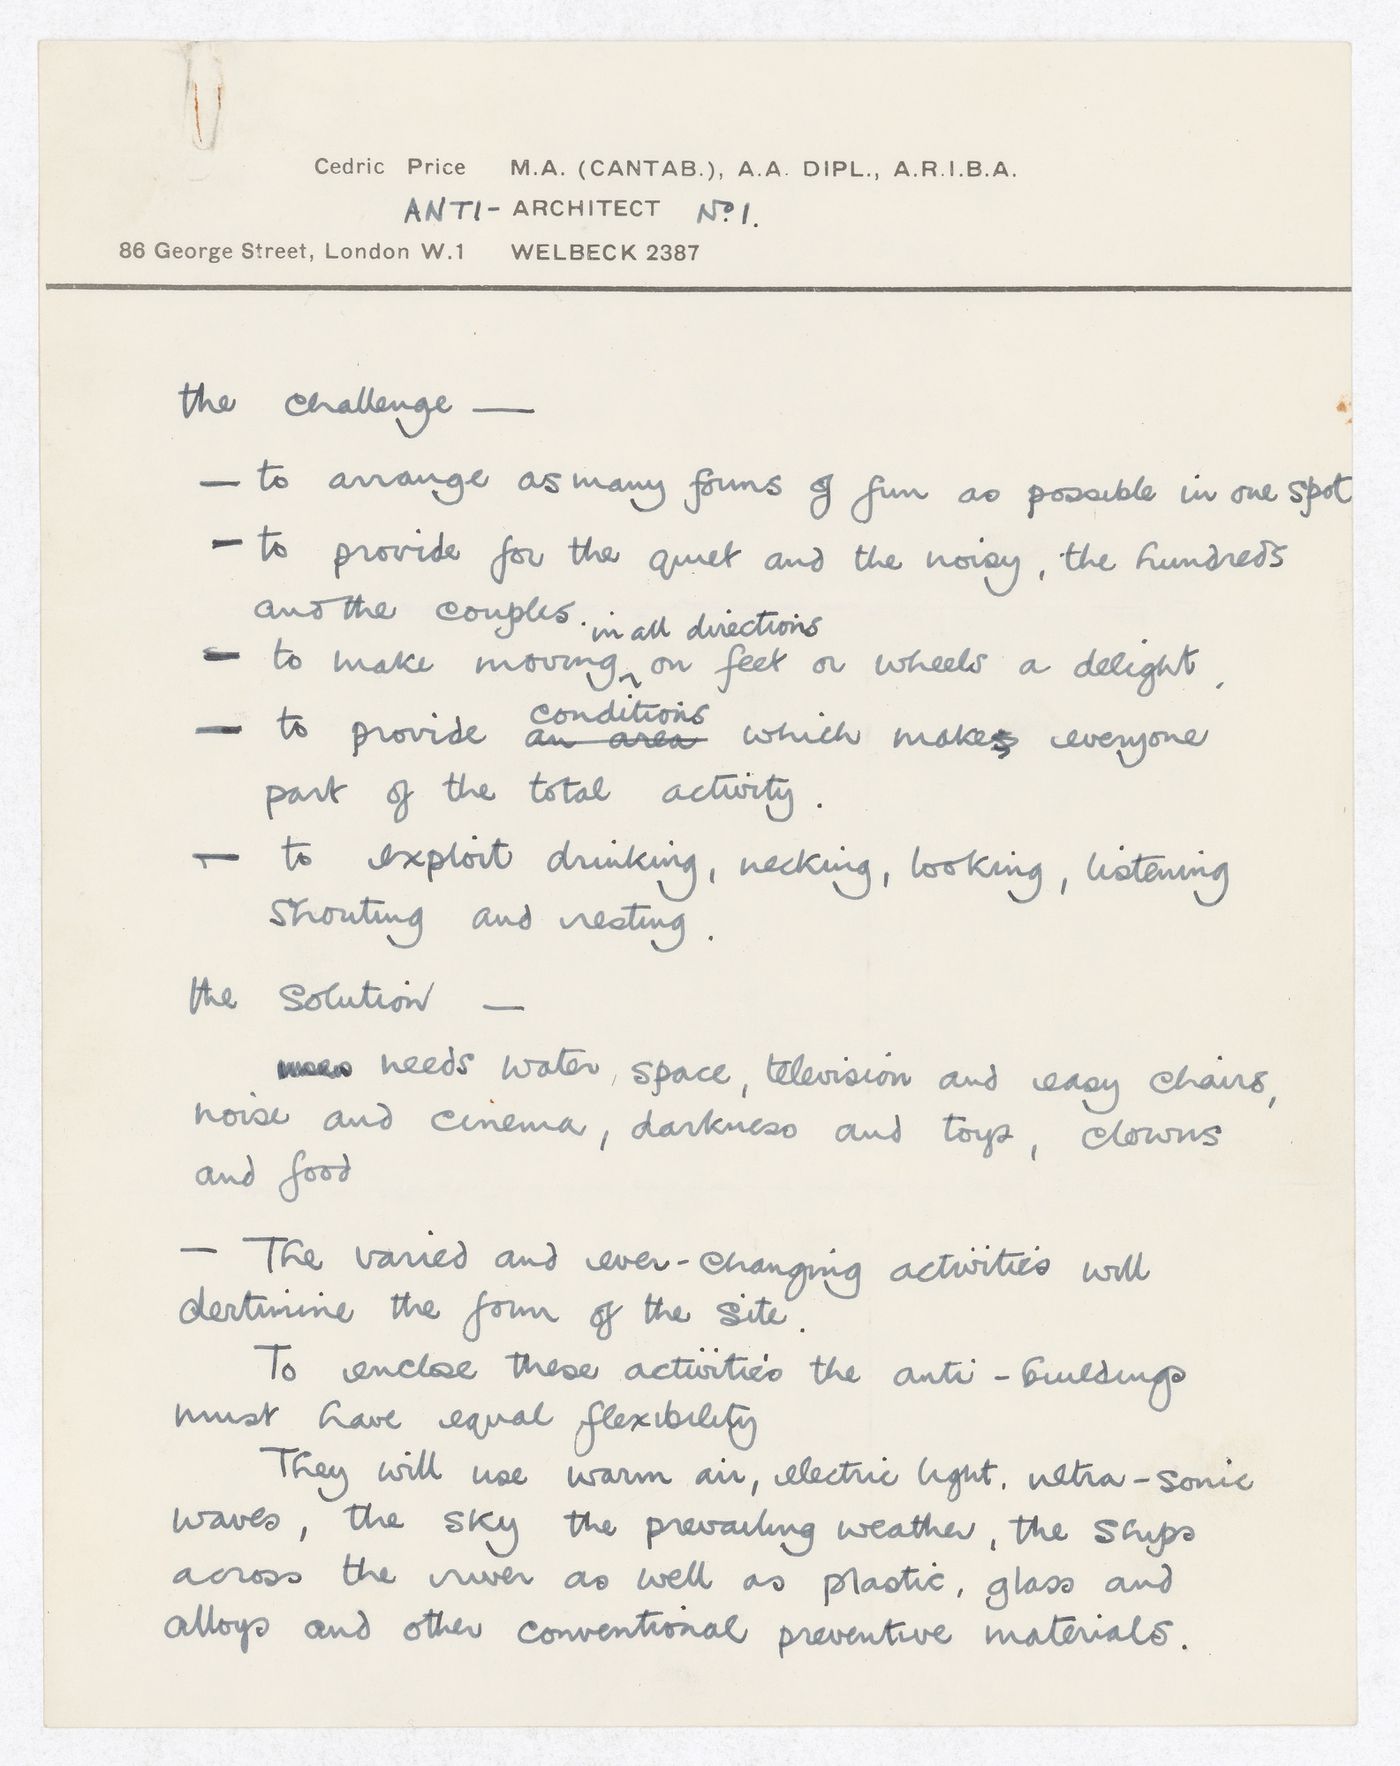 Cedric Price M.A. (CANTAB.), A.A. DIPL., A.R.I.B.A.
ANTI- ARCHITECT No 1.
86 George Street, London W.1 WELBECK 2387
the challenge —
— to arrange as many forms of fun as possible in one spot
— to provide for the quiet and the noisy, the hundreds
and the couples.
in all directions
— to make moving on feet or wheels a delight.
conditions
— to provide an area which makes everyone
part of the total activity.
— to exploit drinking, necking, looking, listening
shouting and resting.
the solution —
needs water, space, television and easy chairs,
noise and cinema, darkness and toys, clowns
and food
— The varied and ever-changing activities will
dertimine the form of the site.
To enclose these activities the anti-buildings
must have equal flexibility
They will use warm air, electric light, ultra-sonic
waves, the sky the prevailing weather, the ships
across the river as well as plastic, glass and
alloys and other conventional preventive materials.